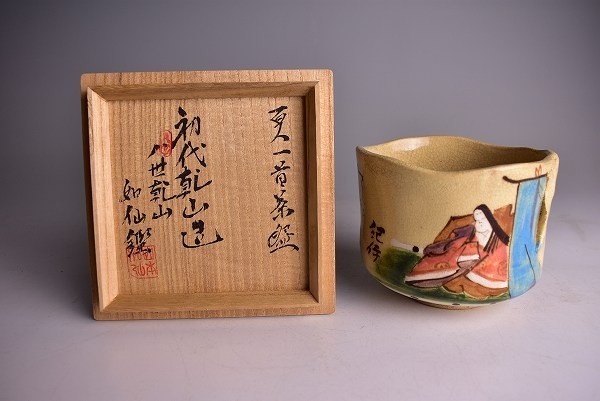 百人一首茶盌
初代乾山造
八世乾山
如仙鑑
紀伊